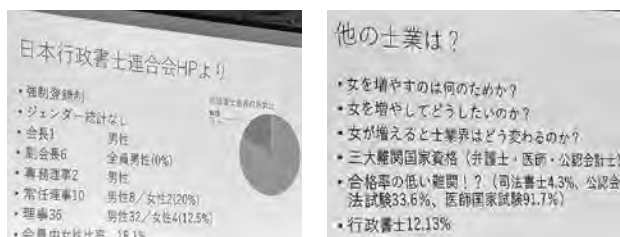 日本行政書士連合会HPより
・強制登録制
・ジェンダー統計なし
・会長1 男性
・副会長6 全員男性(0%)
・専務理事2 男性
・常任理事10 男性8／女性2(20%)
・理事36 男性32／女性4(12.5%)
・会員中女性比率
他の士業は？
・女を増やすのは何のためか？
・女を増やしてどうしたいのか？
・女が増えると士業界はどう変わるのか？
・三大難関国家資格（弁護士・医師・公認会計士）
・合格率の低い難関！？（司法書士4.3%、公認会
法試験33.6%、医師国家試験91.7%）
・行政書士12.13%